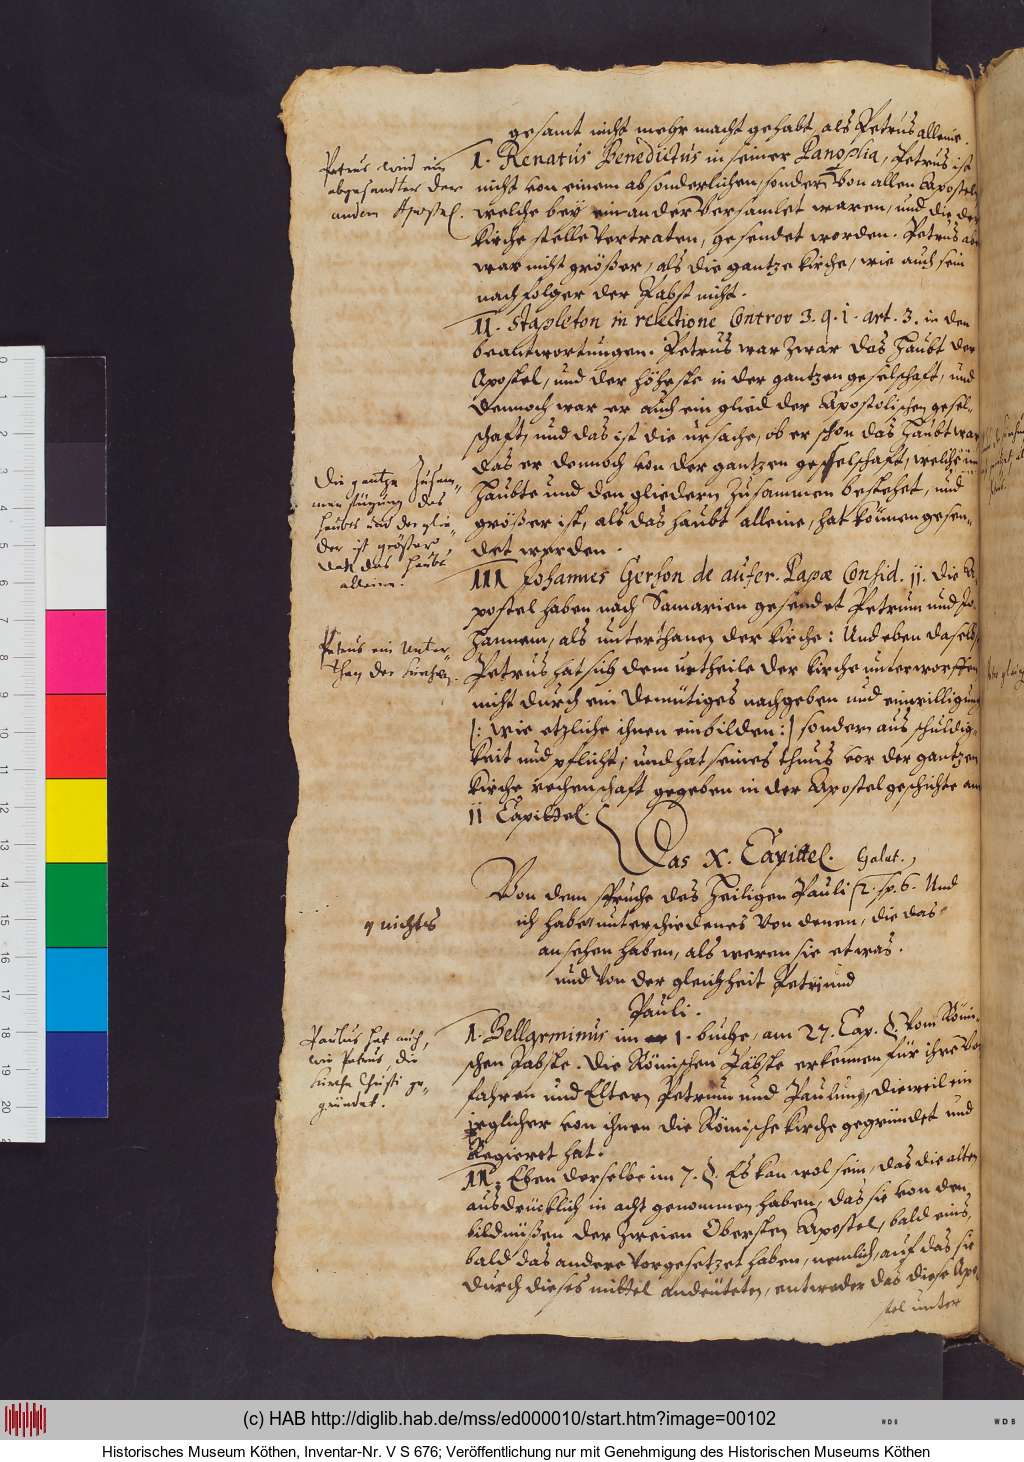 gesamt nicht mehr macht gehabt, als Petrus alleine.
Petrus wird ein
abgesandter der
andern Apostel.
I. Renatus Benedictus in seiner Panoplia, Petrus ist
nicht von einem absonderlichen, sondern von allen Apostel
welche bey einander versamlet waren, und die der
Kirche stelle vertraten, gesendet worden. Petrus aber
war nicht größer, als die gantze kirche, wie auch sein
nachfolger der Pabst nicht.
II. Stapleton in relectione Controv 3. q. 1. art. 3. in den
beantwortungen. Petrus war zwar das Haubt der
Apostel, und der höheste in der gantzen geselschaft, und
dennoch war er auch ein glied der Apostolischen gesel-
schaft, und das ist die ursache, ob er schon das Haubt war
das er dennoch von der gantzen geselschaft, welche im
Haubte und den gliedern zusammen bestehet, und
größer ist, als das haubt alleine, hat können gesen-
det werden.
Die gantze Zusam-
menfügung des
Haubts und der glie-
der ist größer,
dan das Haubt
alleine.
III Johannes Gerson de aufer. Papæ Consid. 11. die A-
postel haben nach Samarien gesendet Petrum und Jo-
hannem, als unterthanen der kirche: Und eben daselbst
Petrus hat sich dem urtheile der kirche unterworffen
nicht durch ein demütiges nachgeben und einwilligung
(: wie etzliche ihnen einbilden:) sondern aus schuldig-
keit und pflicht; und hat seines thuns vor der gantzen
kirche rechenschaft gegeben in der Apostelgeschichte am
11 Capittel.
Petrus ein Unter-
than der kirchen.
Das X. Capittel.
Von dem spruche des Heiligen Pauli Galat. 2. sp. 6. Und
ich habe unterschiedenes von denen, die das
nichtes
ansehen haben, als weren sie etwas.
und von der gleichheit Petri und
Pauli.
I. Bellarminus im 1. buche, am 27. Cap. §. Vom Römi-
schen Pabste. Die Römischen Päbste erkennen für ihre Vor
fahren und Eltern Petrum und Paulum, dieweil ein
ieglicher von ihnen die Römische kirche gegründet und
Regieret hat.
Paulus hat auch,
wie Petrus, die
kirche Christi ge-
gründet.
II. Eben derselbe im 7. §. Es kan wol sein, das die alten
ausdrücklich in acht genommen haben, das sie von den
bildnüßen der zweien Obersten Apostel, bald eins,
bald das andere vorgesetzet haben, nemlich, auf das sie
durch dieses mittel andeuteten, entweder das diese Apo
stel unter
0
1
2
3
4
5
6
7
8
9
10
11
12
13
14
15
16
17
18
19
20
(c) HAB http://diglib.hab.de/mss/ed000010/start.htm?image=00102
WDB
WDB
Historisches Museum Köthen, Inventar-Nr. V S 676; Veröffentlichung nur mit Genehmigung des Historischen Museums Köthen